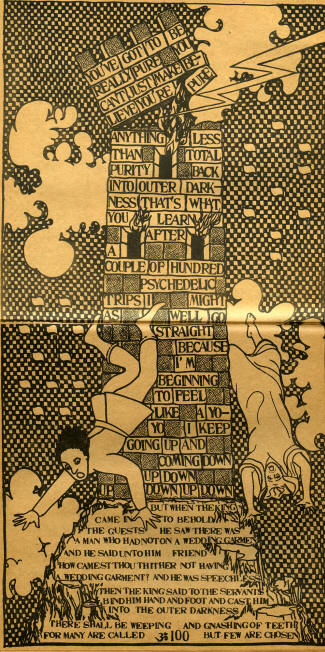 YOU'VE GOT TO BE
REALLY PURE YOU
CAN'T JUST MAKE BE-
LIEVE YOU'RE PURE
ANYTHING LESS
THAN TOTAL
PURITY BACK
INTO OUTER DARK-
NESS THAT'S WHAT
YOU LEARN
AFTER
A
COUPLE OF HUNDRED
PSYCHEDELIC
TRIPS I MIGHT
AS WELL GO
STRAIGHT
BECAUSE
I'M
BEGINNING
TO FEEL
LIKE A YO-
YO I KEEP
GOING UP AND
COMING DOWN
UP DOWN
UP DOWN UP DOWN
BUT WHEN THE KING
CAME IN TO BEHOLD
THE GUESTS HE SAW THERE WAS
A MAN WHO HAD NOT ON A WEDDING GARMENT
AND HE SAID UNTO HIM FRIEND
HOW CAMEST THOU HITHER NOT HAVING
A WEDDING GARMENT? AND HE WAS SPEECHLESS
THEN THE KING SAID TO THE SERVANTS
BIND HIM HAND AND FOOT AND CAST HIM
INTO THE OUTER DARKNESS
THERE SHALL BE WEEPING AND GNASHING OF TEETH
FOR MANY ARE CALLED ॐ100 BUT FEW ARE CHOSEN